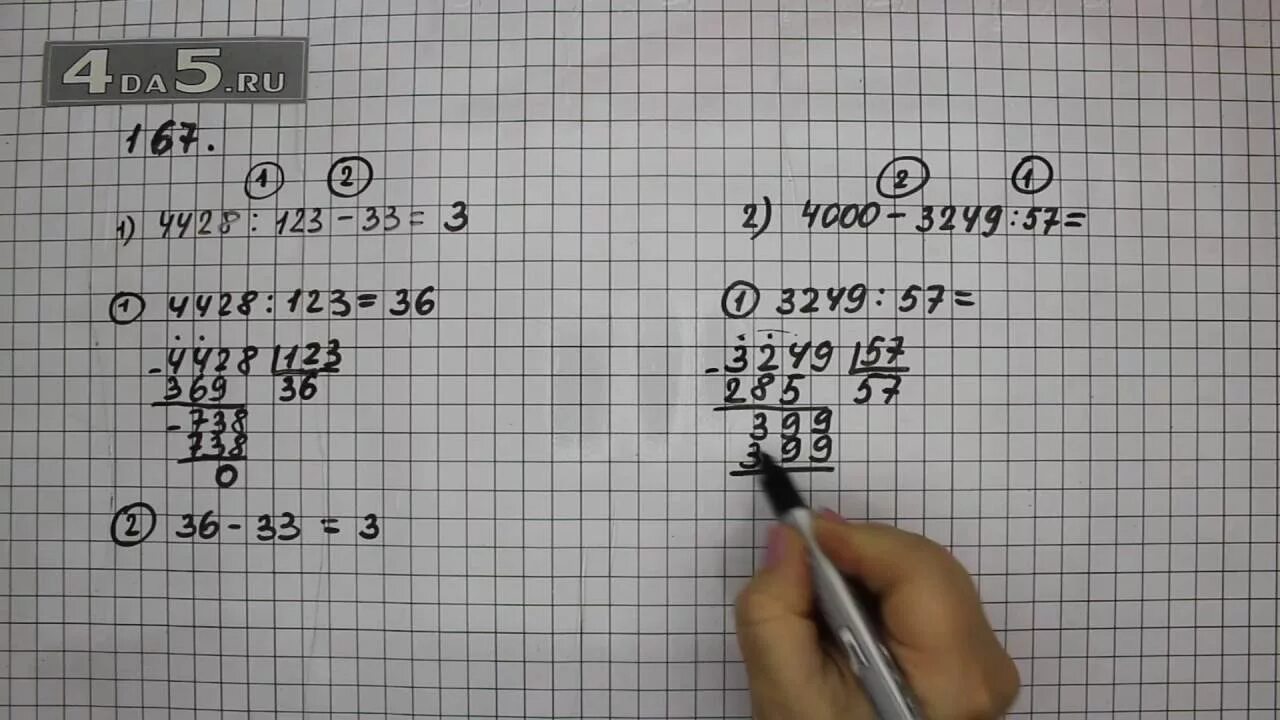 4DA5.RU
167.
① ②
1) 4428 : 123 - 33 = 3
① 4428 : 123 = 36
- 4428 | 123
369 36
- 738
738
0
② 36 - 33 = 3
② ①
2) 4000 - 3249 : 57 =
① 3249 : 57 =
- 3249 | 57
285 57
399
399